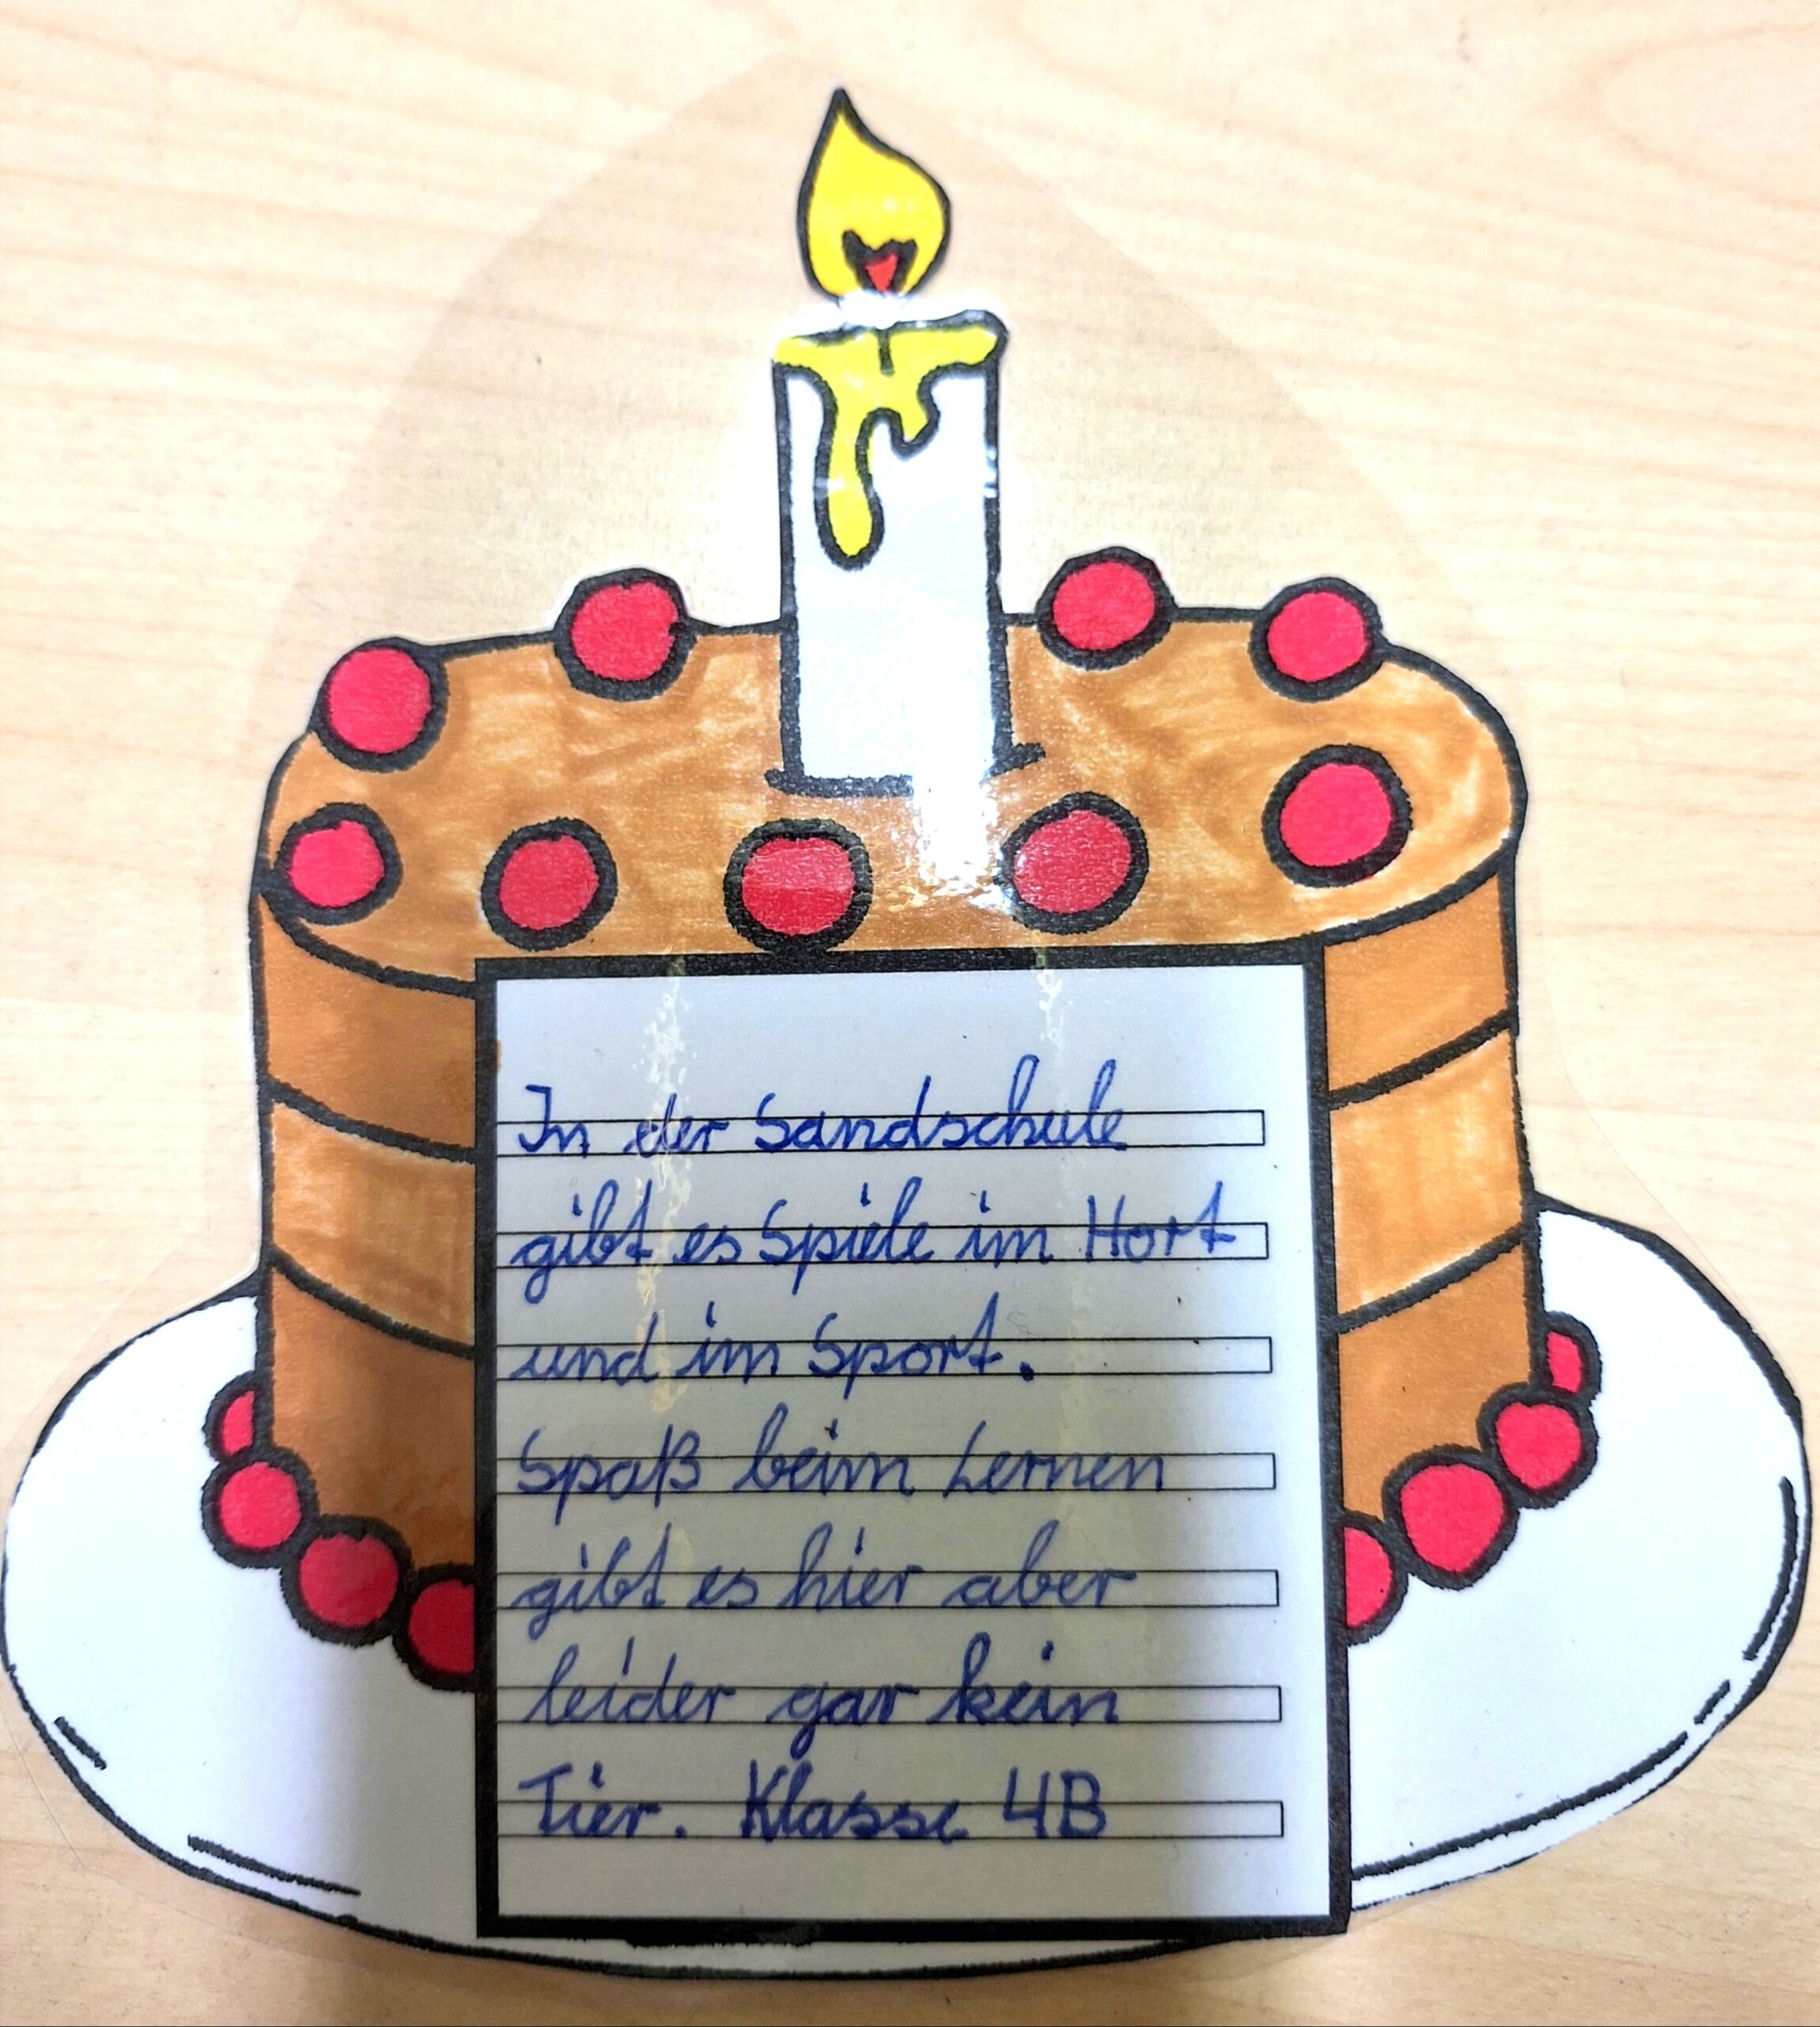 In der Sandschule
gibt es Spiele im Hort
und im Sport.
Spaß beim Lernen
gibt es hier aber
leider gar kein
Tier. Klasse 4B